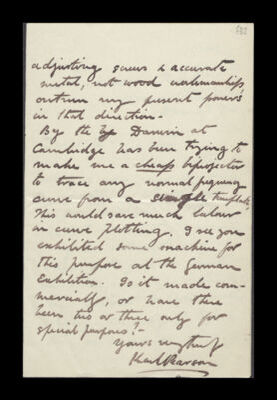 adjusting screws & accurate
metal, not wood workmanship
outrun my present powers
in that direction -
By the bye Darwin at
Cambridge has been trying to
make me a cheap biprojector
to trace any normal frequency
curve from a single template.
This would save much labour
in curve plotting. I see you
exhibited some machine for
this purpose at the German
Exhibition. Is it made com-
mercially, or have there
been two or three only for
special purposes? -
Yours very truly
Karl Pearson